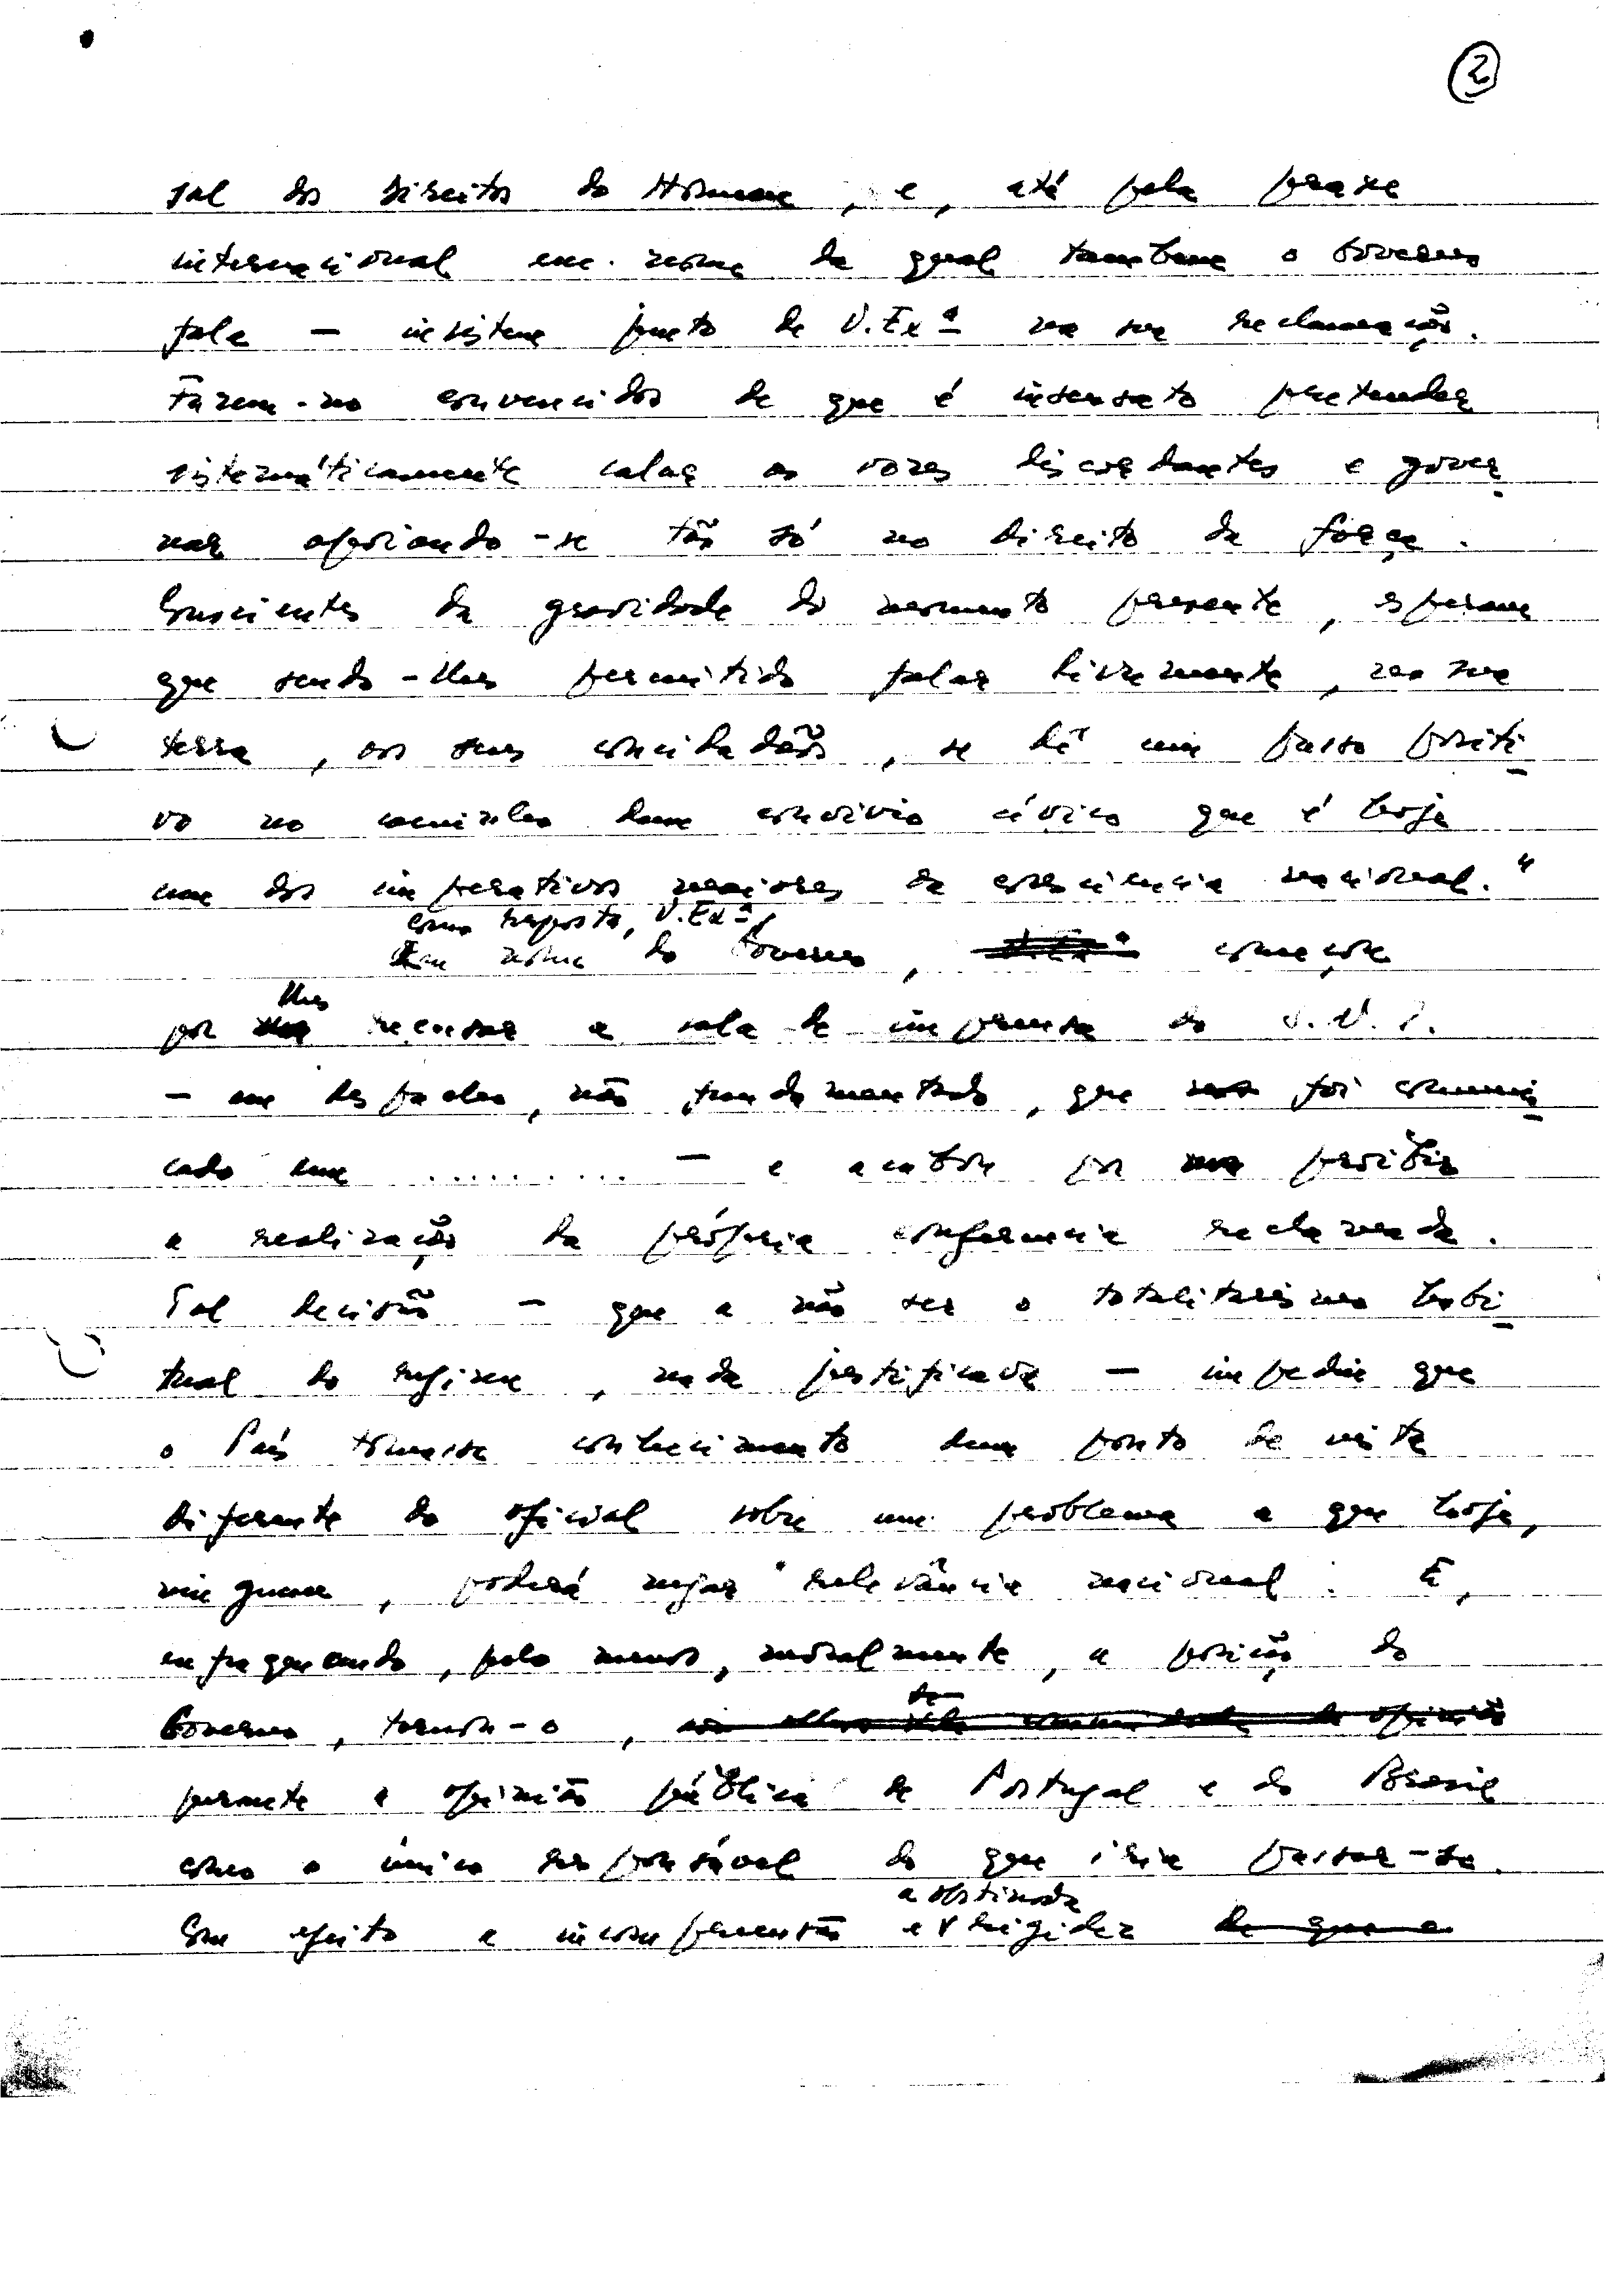 2
sal dos Direitos do Homem, e, até pela praxe
internacional em nome da qual tambem o Governo
fala — insistem junto de V. Exª na sua reclamação.
Fazem-no convencidos de que é insensato pretender
sistemáticamente calar as vozes discordantes e gover
nar apoiando-se tão só no direito da força.
Conscientes da gravidade do momento presente, esperam
que sendo-lhes permitido falar livremente, na sua
terra, aos seus concidadãos, se dê um passo positi
vo no caminho dum convivio cívico que é hoje
um dos imperativos maiores da consciencia nacional."
como resposta, V. Exª,
Em nome do Governo, começou
lhes
por recusar a sala de imprensa do S.N.I.
— em despacho, não fundamentado, que foi comuni
cado em .......... — e acabou por proibir
a realização da própria conferencia reclamada.
Tal decisão — que a não ser o totalitarismo habi
tual do regime, nada justificava — impediu que
o País tomasse conhecimento dum ponto de vista
diferente do oficial sobre um problema a que hoje,
ninguem, poderá negar relevância nacional. E,
enfraquecendo, pelo menos, moralmente, a posição do
Governo, tornou-o,
perante a opinião pública de Portugal e do Brasil
como o único responsável do que iria passar-se.
a obstinada
Com efeito a incompreensão e rigidez de que a